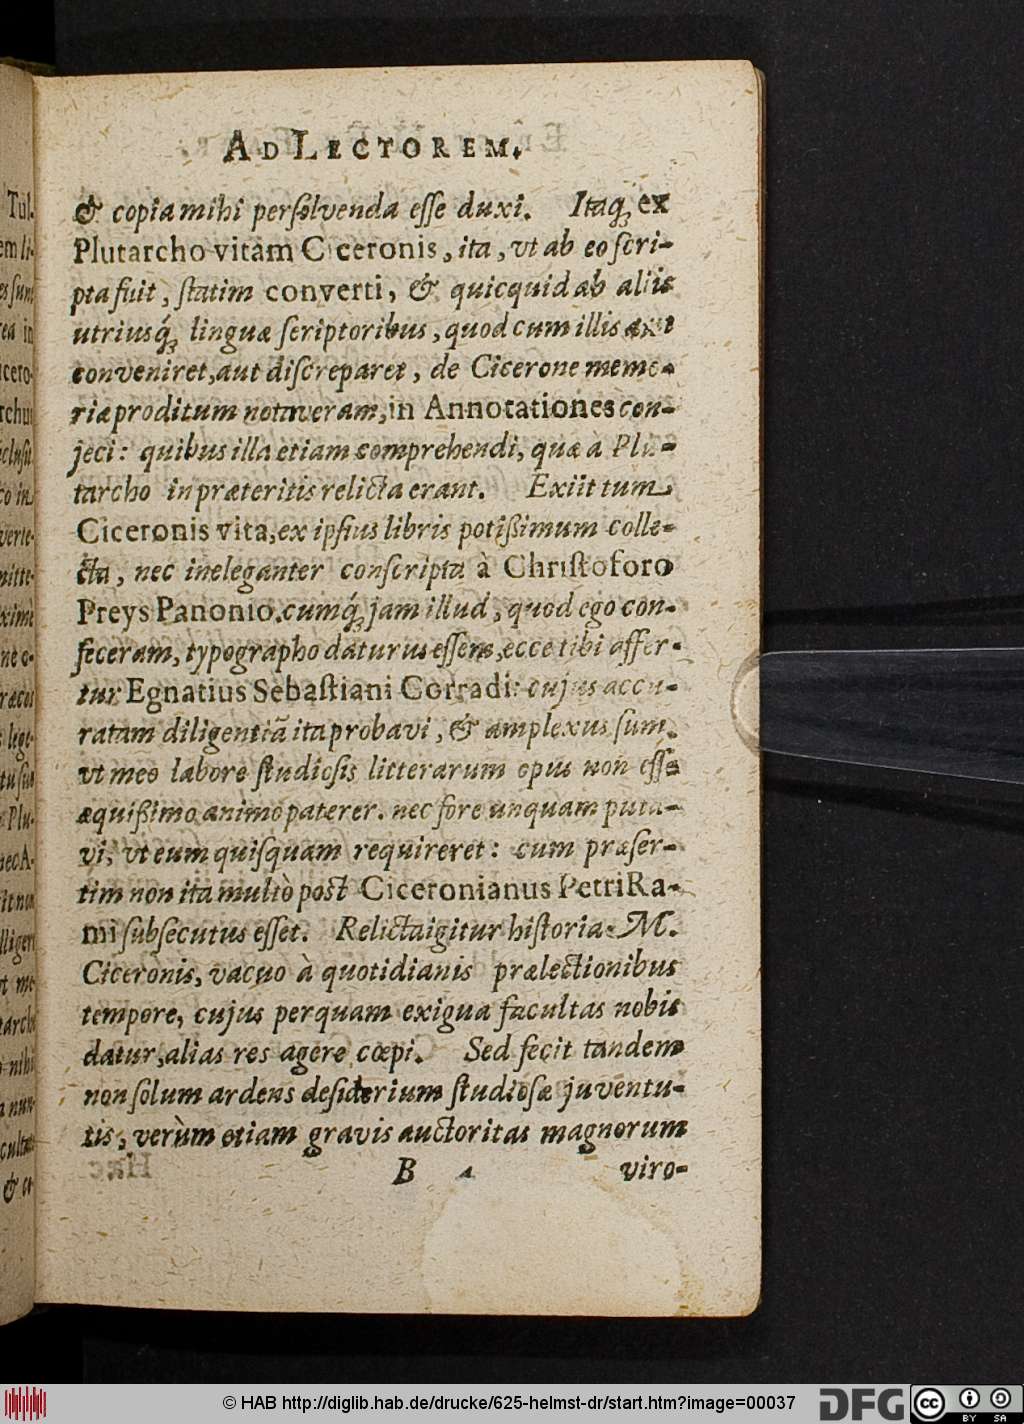 AD LECTOREM.
& copia mihi persolvenda esse duxi. Itaq́; ex
Plutarcho vitam Ciceronis, ita, vt ab eo scri-
pta fuit, statim converti, & quicquid ab aliis
utriusq́; linguæ scriptoribus, quod cum illis aut
conveniret, aut discreparet, de Cicerone memo-
riæ proditum notaveram, in Annotationes con-
jeci: quibus illa etiam comprehendi, quæ à Plu-
tarcho in præteritis relicta erant. Exiit tum
Ciceronis vita, ex ipsius libris potißimum colle-
cta, nec ineleganter conscripta à Christoforo
Preys Panonio. cumq́; jam illud, quod ego con-
feceram, typographo daturus essem, ecce tibi affer-
tur Egnatius Sebastiani Corradi: cujus accu-
ratam diligentiā ita probavi, & amplexus sum,
vt meo labore studiosis litterarum opus non esse
æquißimo animo paterer. nec fore unquam puta-
vi, vt eum quisquam requireret: cum præser-
tim non ita multò post Ciceronianus Petri Ra-
mi subsecutus esset. Relicta igitur historia M.
Ciceronis, vacuo à quotidianis prælectionibus
tempore, cujus perquam exigua facultas nobis
datur, alias res agere cœpi. Sed fecit tandem
non solum ardens desiderium studiosæ juventu-
tis, verùm etiam gravis auctoritas magnorum
B viro-
Tul.
em li-
es sunt
ea in
icero-
rchus
verte-
mitte-
ximè
ræcos
lige-
Plu-
nec A-
lligen
t me
tarcho
nihi
nun-
& et
© HAB http://diglib.hab.de/drucke/625-helmst-dr/start.htm?image=00037
DFG
cc
BY SA